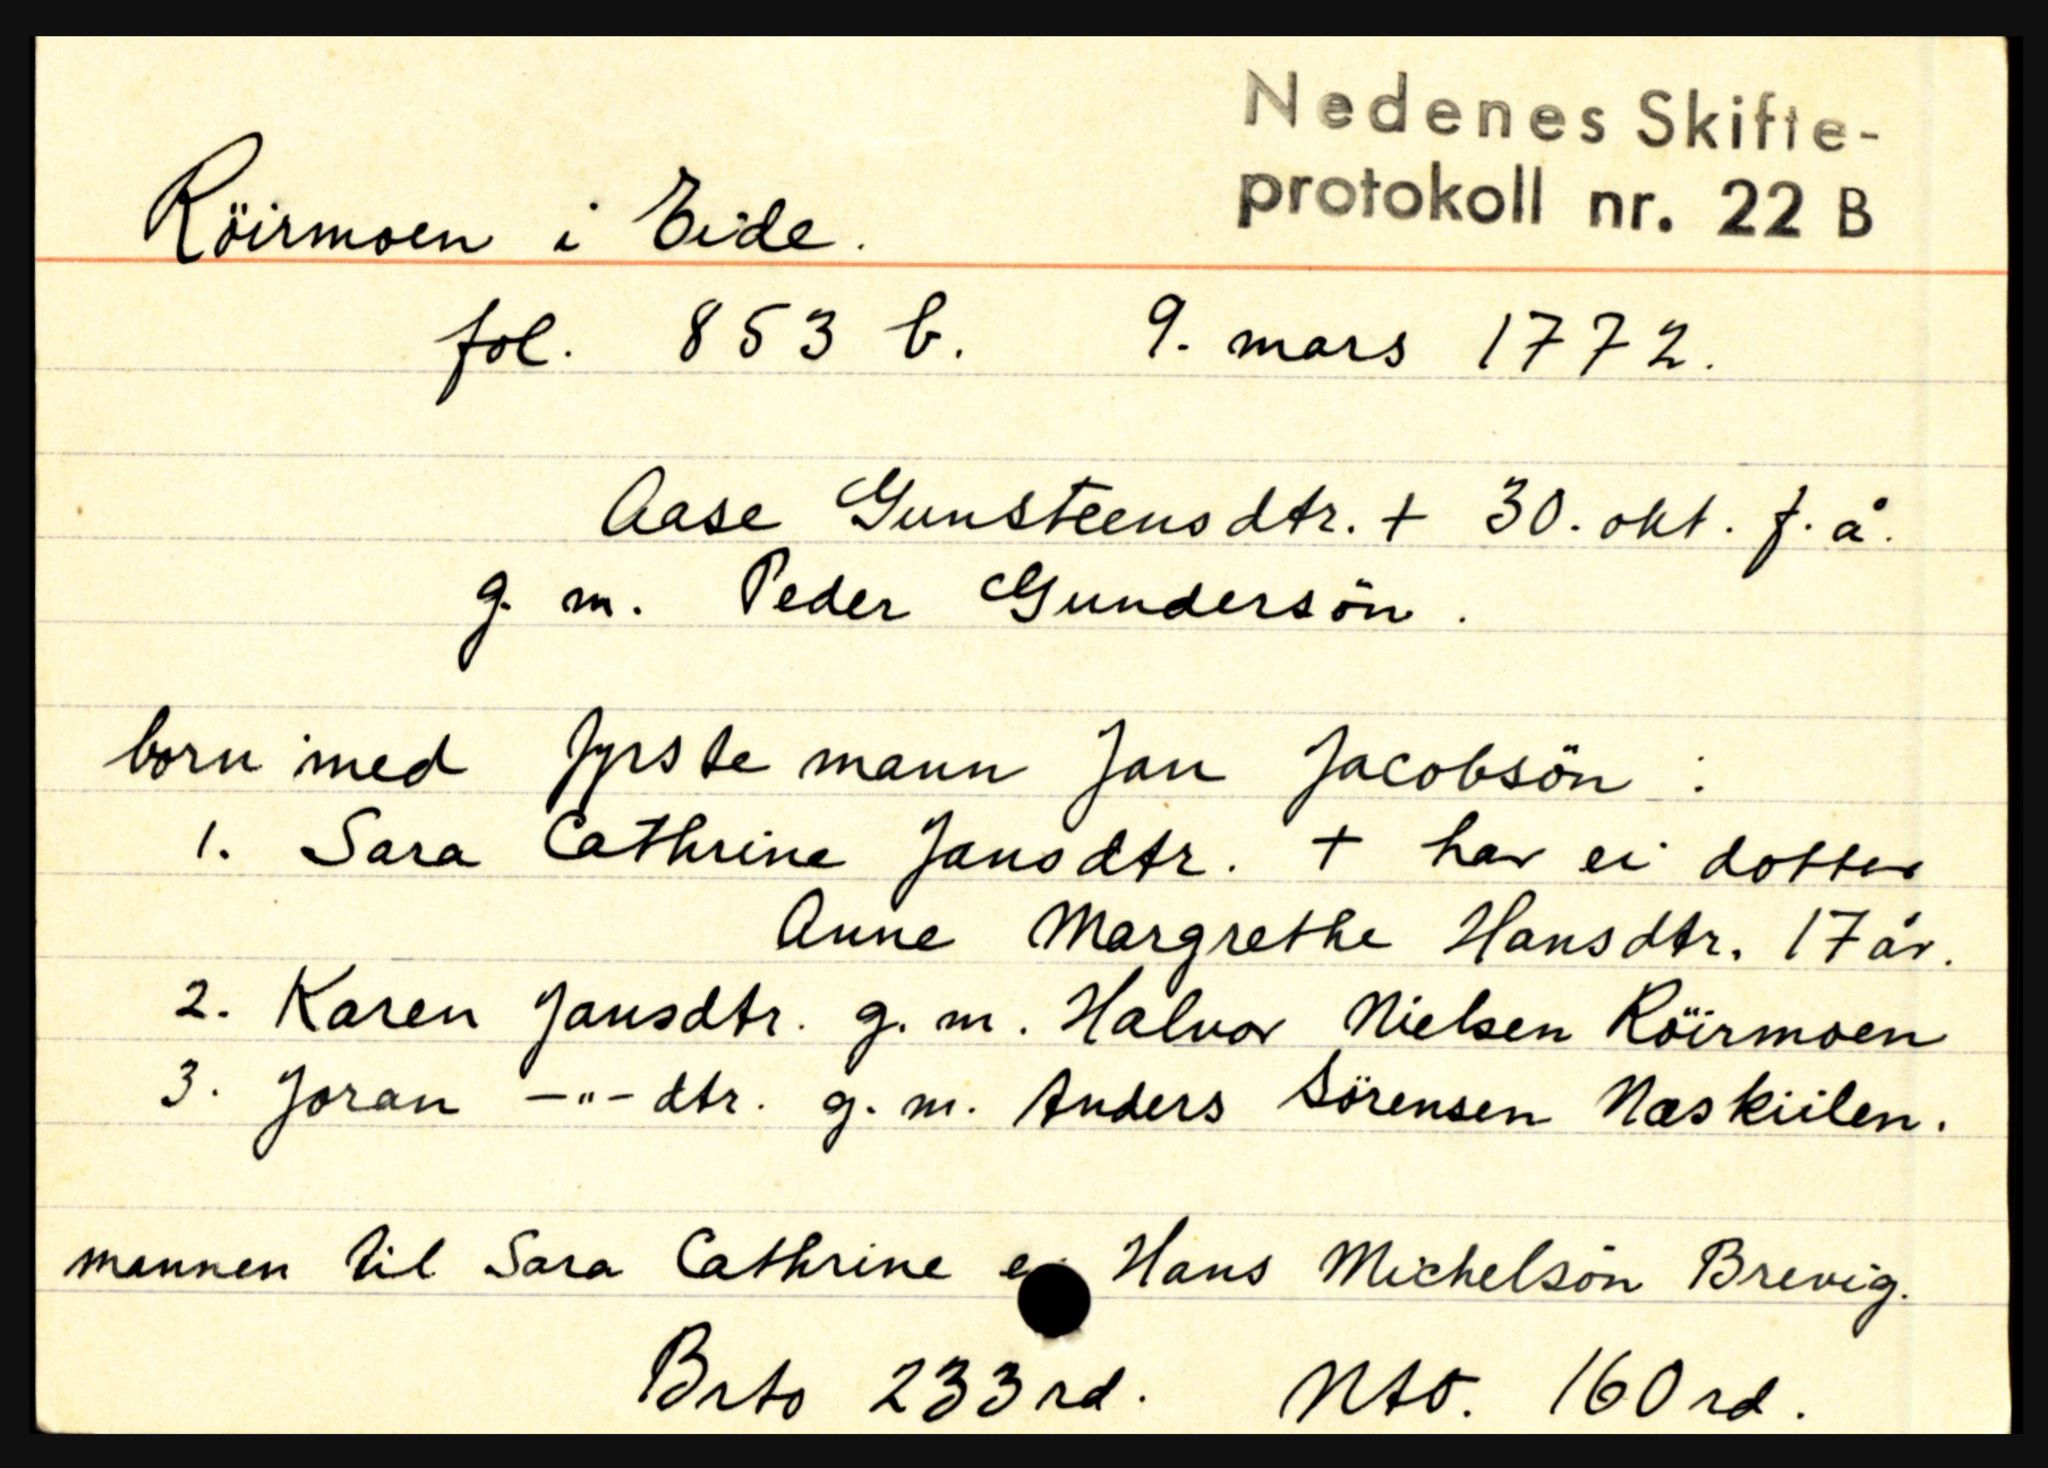 Nedenes Skifte-
protokoll nr. 22 B
Röirmoen i Eide.
fol. 853 b. 9. mars 1772.
Aase Gunsteensdtr. + 30. okt. f. å.
g. m. Peder Gundersön.
born med fyrste mann Jan Jacobsön :
1. Sara Cathrine Jansdtr. + har ei dotter
Anne Margrethe Hansdtr. 17 år.
2. Karen Jansdtr. g. m. Halvor Nielsen Röirmoen
3. Joran -"- dtr. g. m. Anders Sörensen Næskiilen.
mannen til Sara Cathrine Hans Michelsön Brevig.
Brto 233 rd. Nto. 160 rd.